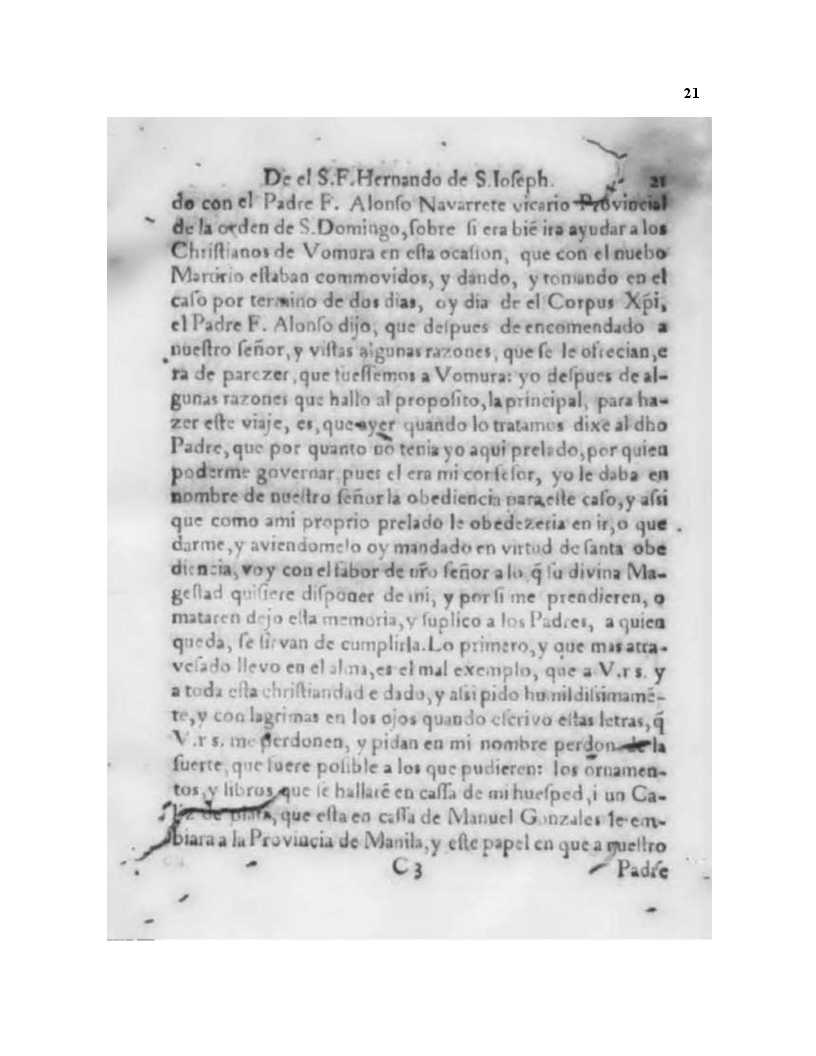 21
De el S.F.Hernando de S.Ioſeph. 21
do con el Padre F. Alonſo Navarrete vicario Provincial
de la orden de S.Domingo,ſobre ſi era biē ir a ayudar a los
Chriſtianos de Vomura en eſta ocaſion, que con el nuebo
Martirio eſtaban commovidos, y dando, y tomando en el
caſo por termino de dos dias, oy dia de el Corpus Xp̄i,
el Padre F. Alonſo dijo, que deſpues de encomendado a
nueſtro ſeñor,y viſtas algunas razones, que ſe le ofrecian,e
ra de parezer,que fueſſemos a Vomura: yo deſpues de al-
gunas razones que hallo al propoſito,la principal, para ha-
zer eſte viaje, es,que ayer quando lo tratamos dixe al dho
Padre,que por quanto no tenia yo aqui prelado,por quien
poderme governar,pues el era mi confeſor, yo le daba en
nombre de nueſtro ſeñor la obediencia para eſte caſo,y aſsi
que como ami proprio prelado le obedezeria en ir,o que
darme,y aviendomelo oy mandado en virtud de ſanta obe
diencia,voy con el fabor de nr̄o ſeñor a lo q̄ ſu divina Ma-
geſtad quiſiere diſponer de mi, y por ſi me prendieren, o
mataren dejo eſta memoria,y ſuplico a los Padres, a quien
queda, ſe ſirvan de cumplirla.Lo primero,y que mas atra-
veſado llevo en el alma,es el mal exemplo, que a V.r s. y
a toda eſta chriſtiandad e dado,y aſsi pido humildiſsimamē-
te,y con lagrimas en los ojos quando eſcrivo eſtas letras,q̄
V.r s. me perdonen, y pidan en mi nombre perdon de la
ſuerte,que fuere poſible a los que pudieren: los ornamen-
tos,y libros,que ſe hallarē en caſſa de mi hueſped,i un Ca-
liz de plata,que eſta en caſſa de Manuel Gonzales ſe em-
biara a la Provincia de Manila,y eſte papel en que a nueſtro
C 3 Padre